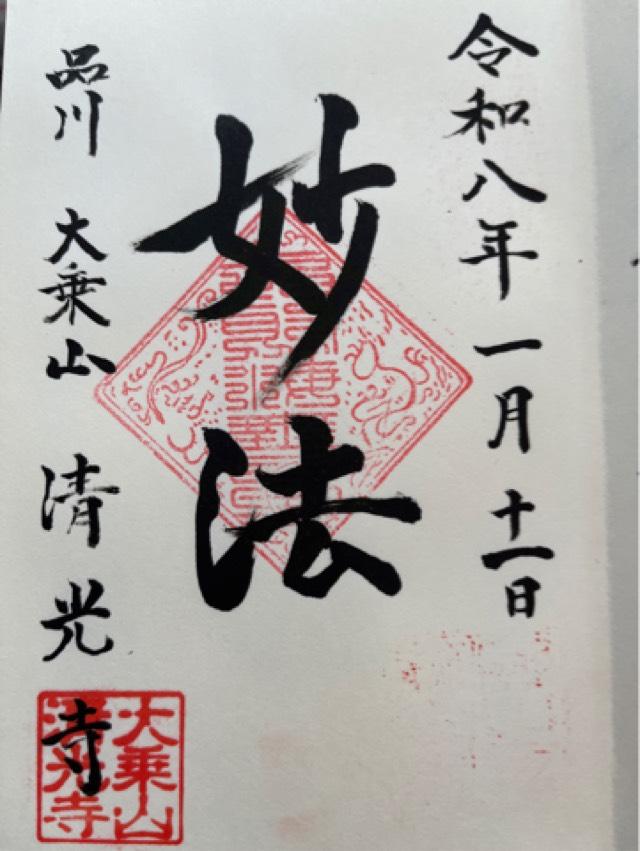 令和八年一月十一日
妙法
品川 大乗山 清光寺
大乗山
清光寺